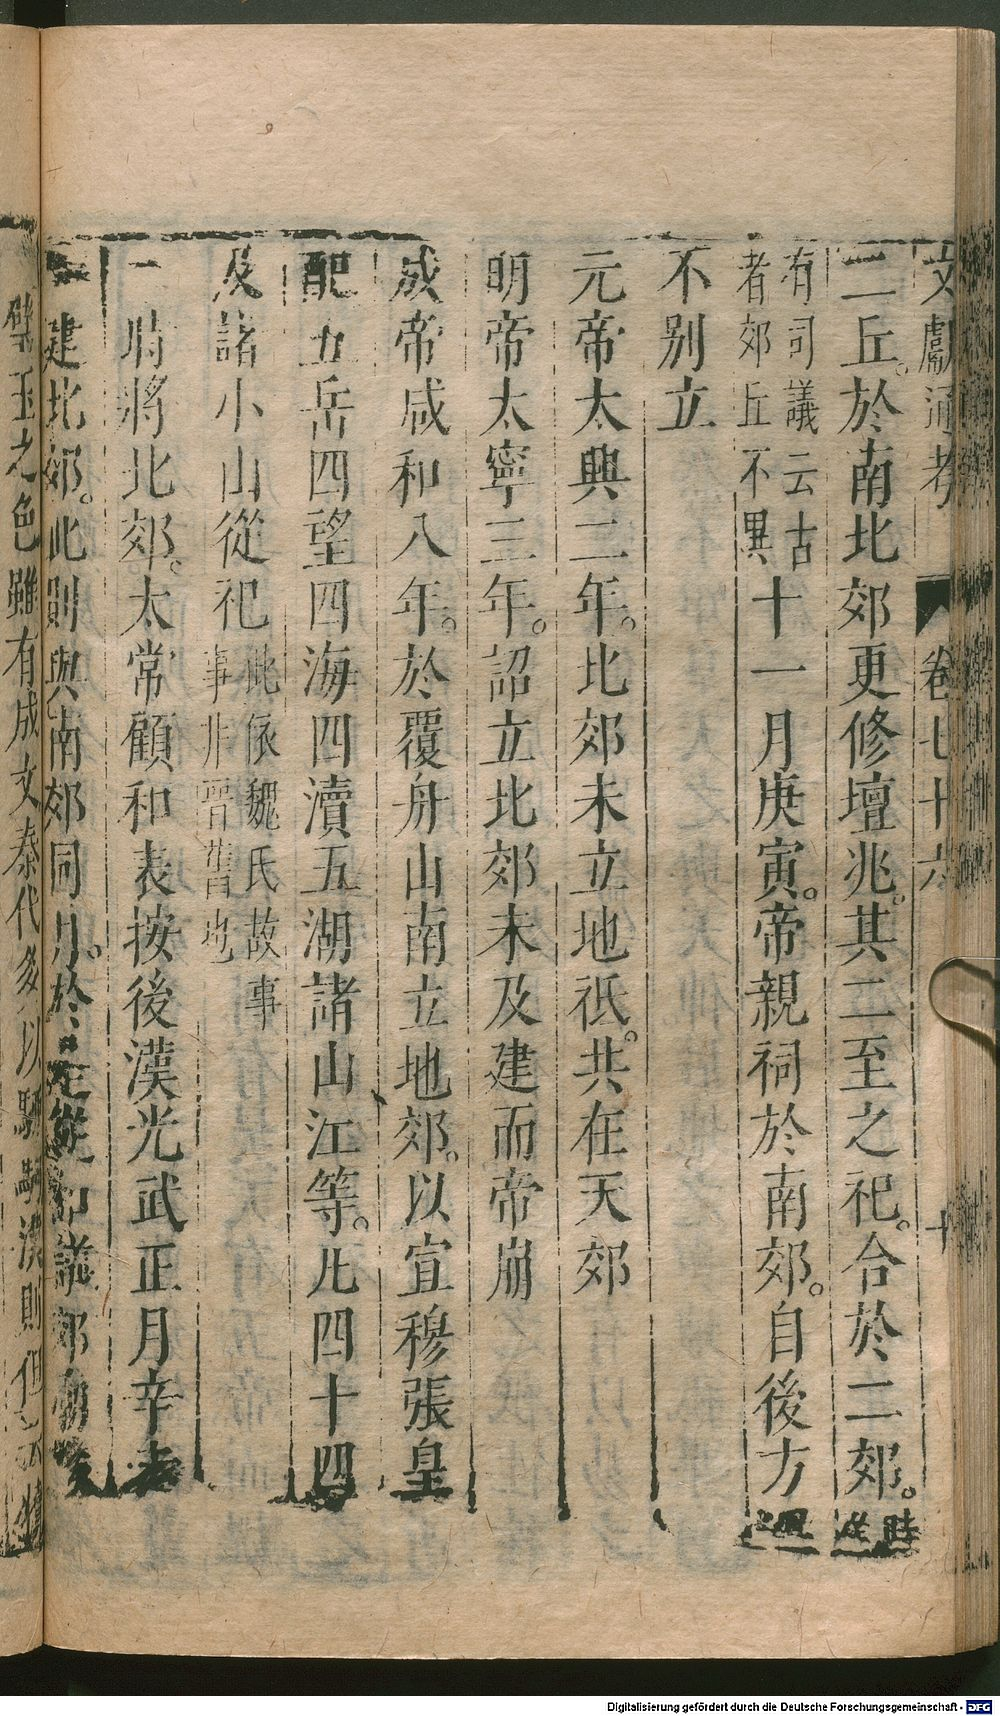 文獻通考 卷七十六 十
二丘。於南北郊更修壇兆。其二至之祀。合於二郊。時從
有司議云古者郊丘不異十一月庚寅。帝親祠於南郊。自後方澤
不別立
元帝太興二年。北郊未立地祇。共在天郊
明帝太寧三年。詔立北郊未及建而帝崩
成帝咸和八年。於覆舟山南立地郊。以宣穆張皇
配五岳四望四海四瀆五湖諸山江等。凡四十四
及諸小山從祀此依魏氏故事非晉舊也
時將北郊。太常顧和表按後漢光武正月辛未
建北郊。此則與南郊同月。於是從和議郊廟
璧玉之色雖有成文秦代多以騂駒漢則但云犢
Digitalisierung gefördert durch die Deutsche Forschungsgemeinschaft - DFG